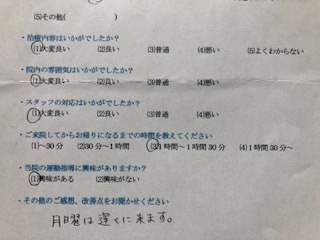 (5)その他(　　　　　)
・治療内容はいかがでしたか?
(1)大変良い　(2)良い　(3)普通　(4)悪い　(5)よくわからない
・院内の雰囲気はいかがでしたか?
(1)大変良い　(2)良い　(3)普通　(4)悪い
・スタッフの対応はいかがでしたか?
(1)大変良い　(2)良い　(3)普通　(4)悪い
・ご来院してからお帰りになるまでの時間を教えてください
(1)～30分　(2)30分～1時間　(3)1時間～1時間30分　(4)1時間30分～
・当院の運動指導に興味がありますか?
(1)興味がある　(2)興味がない
・その他のご感想、改善点をお聞かせください
月曜は遅くに来ます。